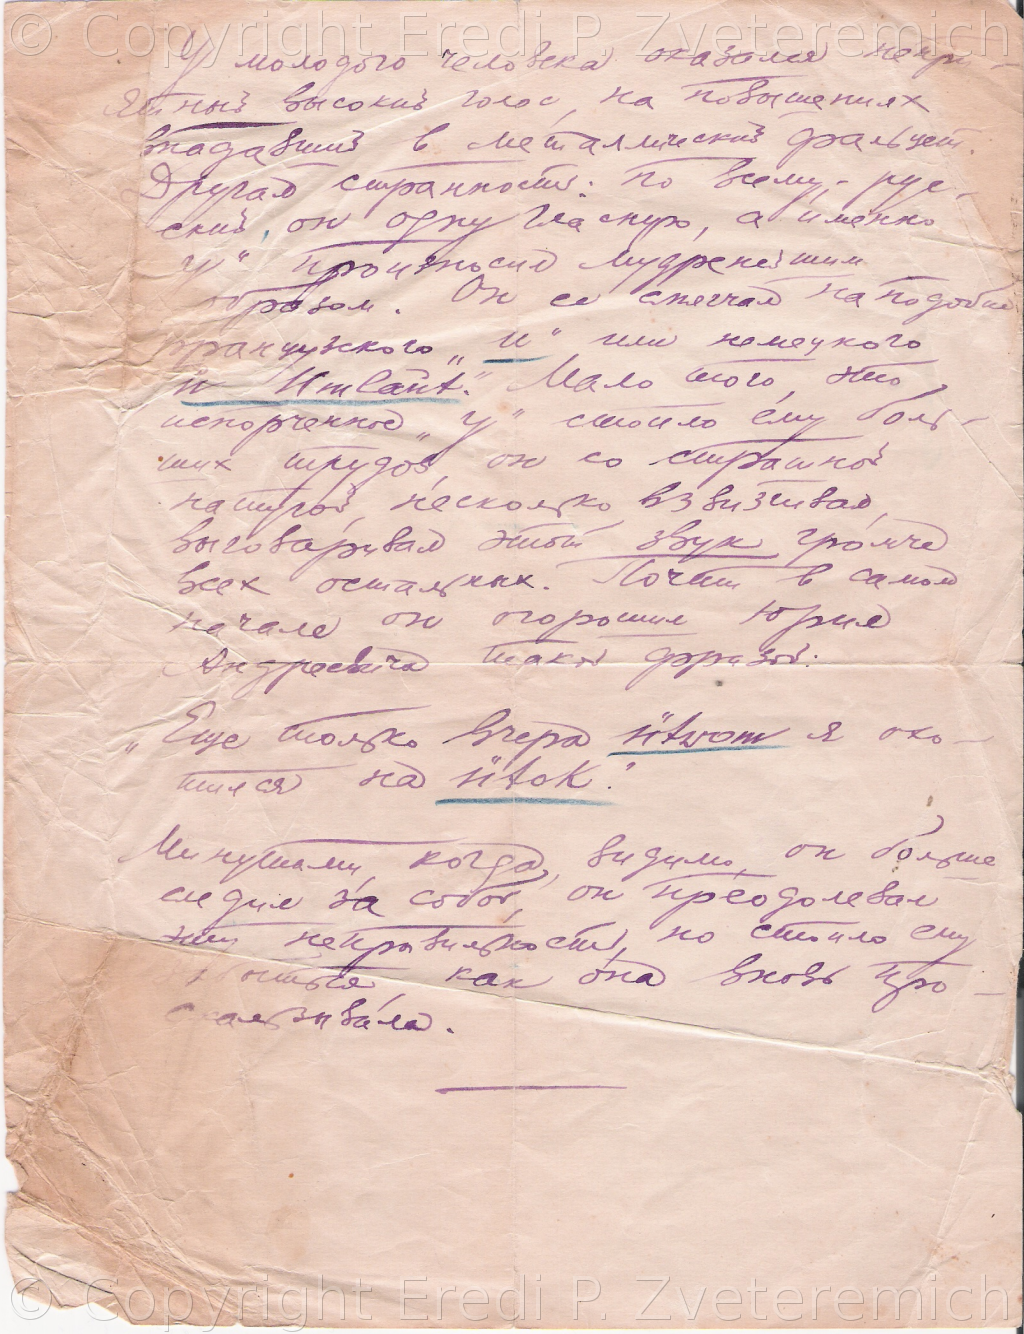 © Copyright Eredi P. Zveteremich
У молодого человека оказался непри-
ятный высокий голос, на повышениях
впадавший в металлический фальцет.
Другая странность: по всему, - рус-
ский, он одну гласную, а именно
"у" произносил мудренейшим
образом. Он ее смягчал наподобие
французского „u" или немецкого
"ü Umlaut." Мало того, это
испорченное „у" стоило ему боль-
ших трудов, он со страшной
натугой, несколько взвизгивая,
выговаривал этот звук громче
всех остальных. Почти в самом
начале он огорошил Юрия
Андреевича такой фразой:
„Еще только вчера ütrom я охо-
тился на ütok."
Минутами, когда, видимо, он больше
следил за собой, он преодолевал
эту неправильность, но стоило ему
как она вновь про-
скальзывала.
© Copyright Eredi P. Zveteremich